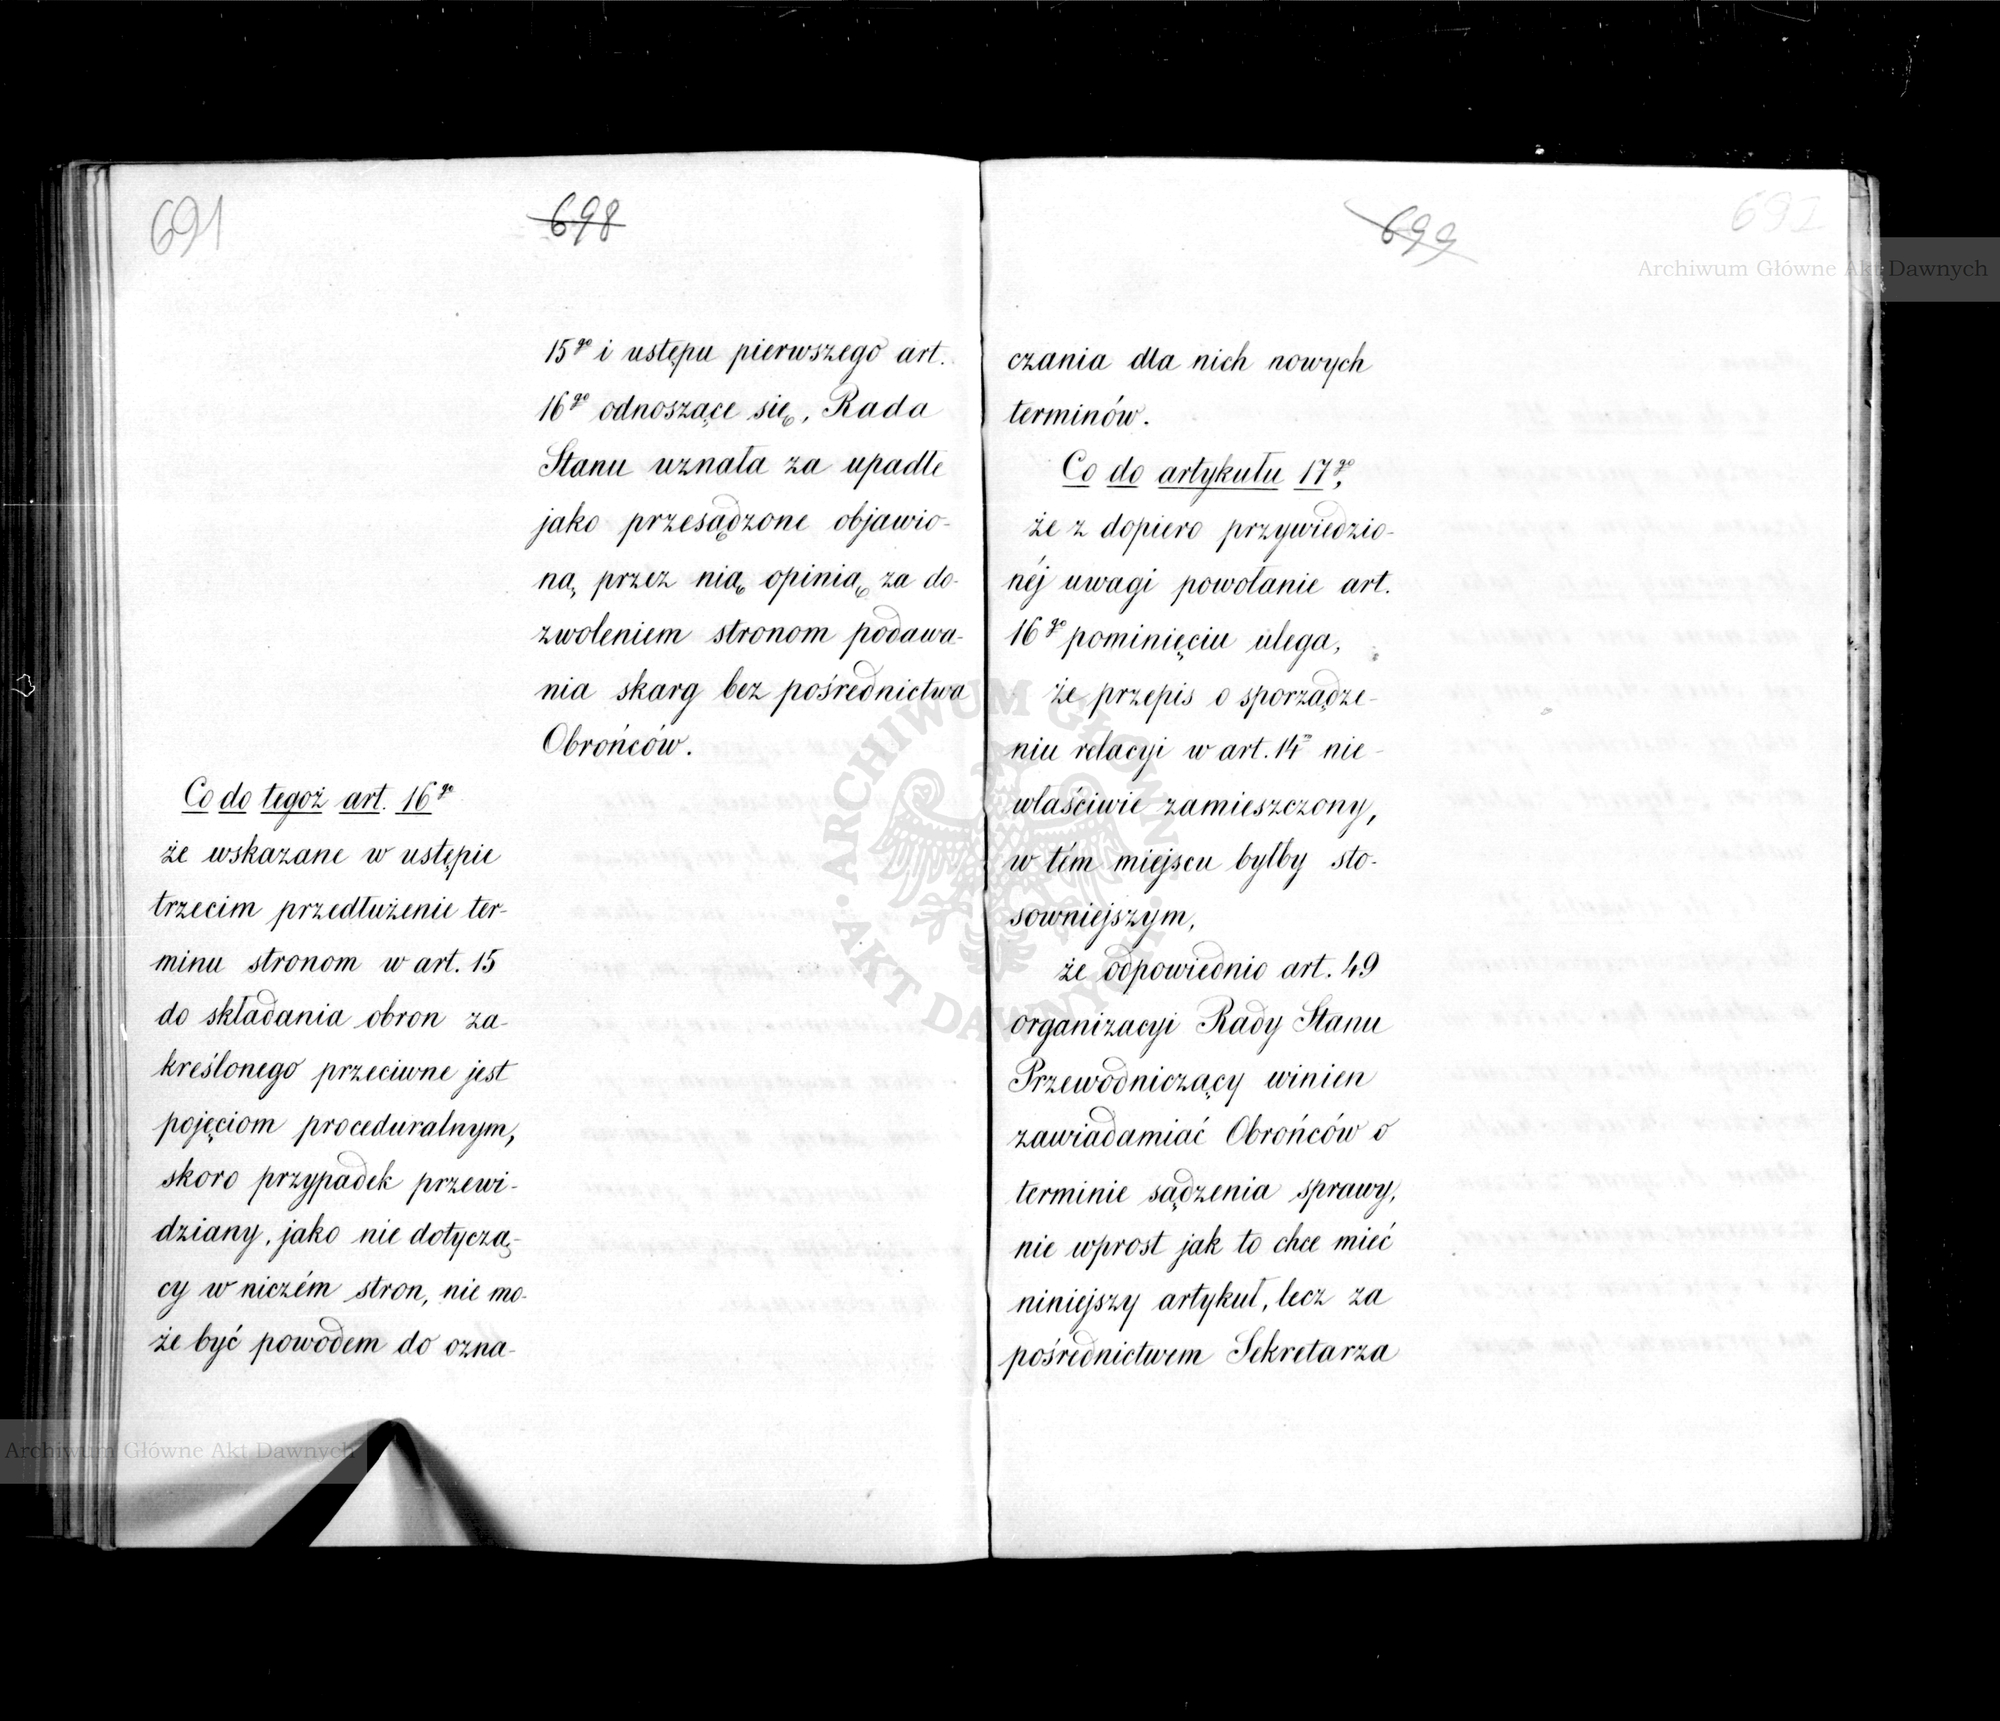 691
698
15go i ustępu pierwszego art.
16go odnoszące się, Rada
Stanu uznała za upadłe
jako przesądzone objawio-
ną przez nią opinią za do-
zwoleniem stronom podawa-
nia skarg bez pośrednictwa
Obrońców.
Co do tegoż art. 16go
że wskazane w ustępie
trzecim przedłużenie ter-
minu stronom w art. 15
do składania obron za-
kreślonego przeciwne jest
pojęciom proceduralnym,
skoro przypadek przewi-
dziany, jako nie dotyczą-
cy w niczém stron, nie mo-
że być powodem do ozna-
699
692
czania dla nich nowych
terminów.
Co do artykułu 17go,
że z dopiero przywiedzio-
néj uwagi powołanie art.
16go pominięciu ulega,
że przepis o sporządze-
niu relacyi w art. 14m nie-
właściwie zamieszczony,
w tém miejscu byłby sto-
sowniejszym,
że odpowiednio art. 49
organizacyi Rady Stanu
Przewodniczący winien
zawiadamiać Obrońców o
terminie sądzenia sprawy,
nie wprost jak to chce mieć
niniejszy artykuł, lecz za
pośrednictwem Sekretarza
Archiwum Główne Akt Dawnych
ARCHIWUM GŁÓWNE
AKT DAWNYCH
Archiwum Główne Akt Dawnych